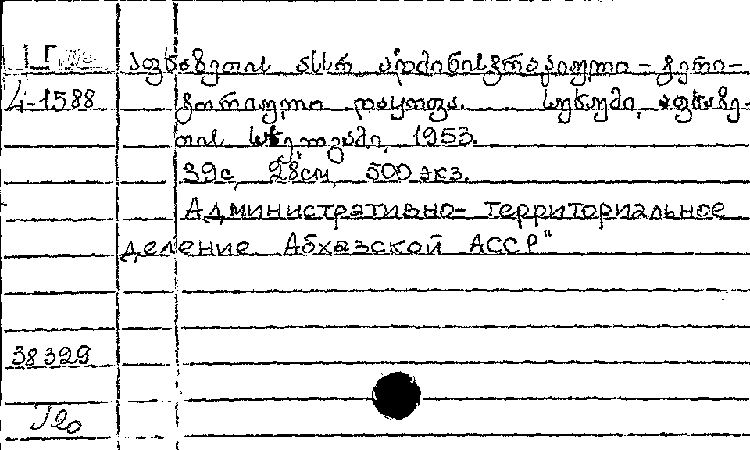 აფხაზეთის ასსრ ადმინისტრაციული - ტერი-
4-1588 ტორიული დაყოფა. სუხუმი, აფხაზე-
თის სახელგამი, 1953.
39с, 28см, 500 экз.
Административно- территориальное
деление Абхазской АССР"
38329